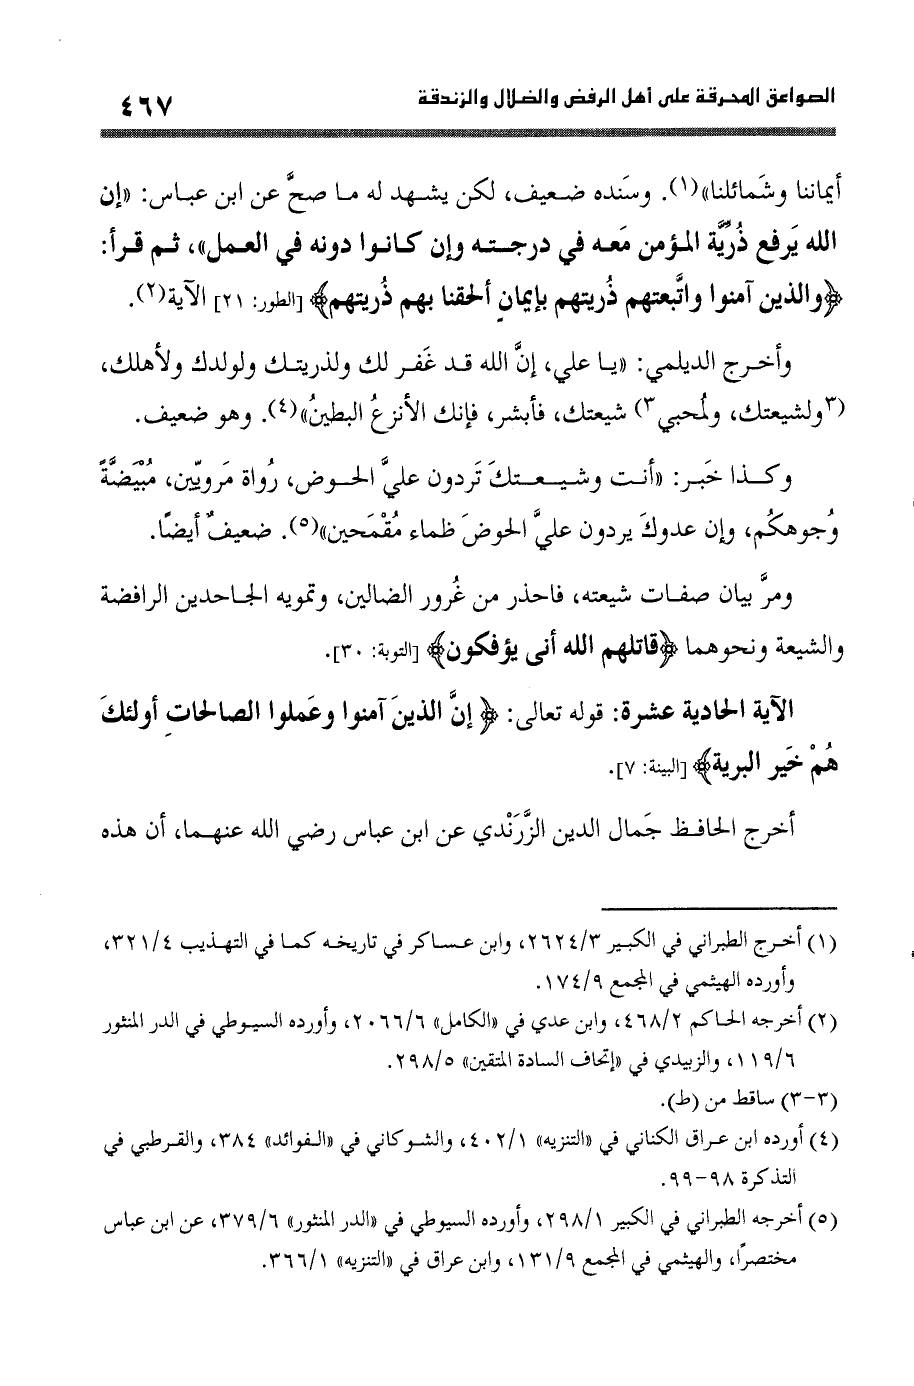 الصواعق المحرقة على أهل الرفض والضلال والزندقة
٤٦٧
أيماننا وشَمائلنا»(١). وسَنده ضعيف، لكن يشهد له ما صحَّ عن ابن عباس: «إن
الله يَرفع ذُرِّيَّة المؤمن مَعه في درجته وإن كانوا دونه في العمل»، ثم قرأ:
﴿والذين آمنوا واتَّبعتهم ذُريتهم بإيمانٍ ألحقنا بهم ذُريتهم﴾ [الطور: ٢١] الآية(٢).
وأخرج الديلمي: «يا علي، إنَّ الله قد غَفر لك ولذريتك ولولدك ولأهلك،
(٣ولشيعتك، ولمُحبي٣) شيعتك، فأبشر، فإنك الأنزعُ البطينُ»(٤). وهو ضعيف.
وكذا خَبر: «أنت وشيعتكَ تَردون عليَّ الحوض، رُواة مَرويّين، مُبْيَضَّةً
وُجوهكُم، وإن عدوكَ يردون عليَّ الحوضَ ظماء مُقْمَحين»(٥). ضعيفٌ أيضًا.
ومرَّ بيان صفات شيعته، فاحذر من غُرور الضالين، وتمويه الجاحدين الرافضة
والشيعة ونحوهما ﴿قاتلهم الله أنى يؤفكون﴾ [التوبة: ٣٠].
الآية الحادية عشرة: قوله تعالى: ﴿إنَّ الذينَ آمنوا وعَملوا الصالحاتِ أولئكَ
هُمْ خَير البرية﴾ [البينة: ٧].
أخرج الحافظ جَمال الدين الزَّرَنْدي عن ابن عباس رضي الله عنهما، أن هذه
(١) أخرج الطبراني في الكبير ٢٦٢٤/٣، وابن عساكر في تاريخه كما في التهذيب ٣٢١/٤،
وأورده الهيثمي في المجمع ١٧٤/٩.
(٢) أخرجه الحاكم ٤٦٨/٢، وابن عدي في «الكامل» ٢٠٦٦/٦، وأورده السيوطي في الدر المنثور
١١٩/٦، والزبيدي في «إتحاف السادة المتقين» ٢٩٨/٥.
(٣-٣) ساقط من (ط).
(٤) أورده ابن عراق الكناني في «التنزيه» ٤٠٢/١، والشوكاني في «الفوائد» ٣٨٤، والقرطبي في
التذكرة ٩٨-٩٩.
(٥) أخرجه الطبراني في الكبير ٢٩٨/١، وأورده السيوطي في «الدر المنثور» ٣٧٩/٦، عن ابن عباس
مختصرًا، والهيثمي في المجمع ١٣١/٩، وابن عراق في «التنزيه» ٣٦٦/١.